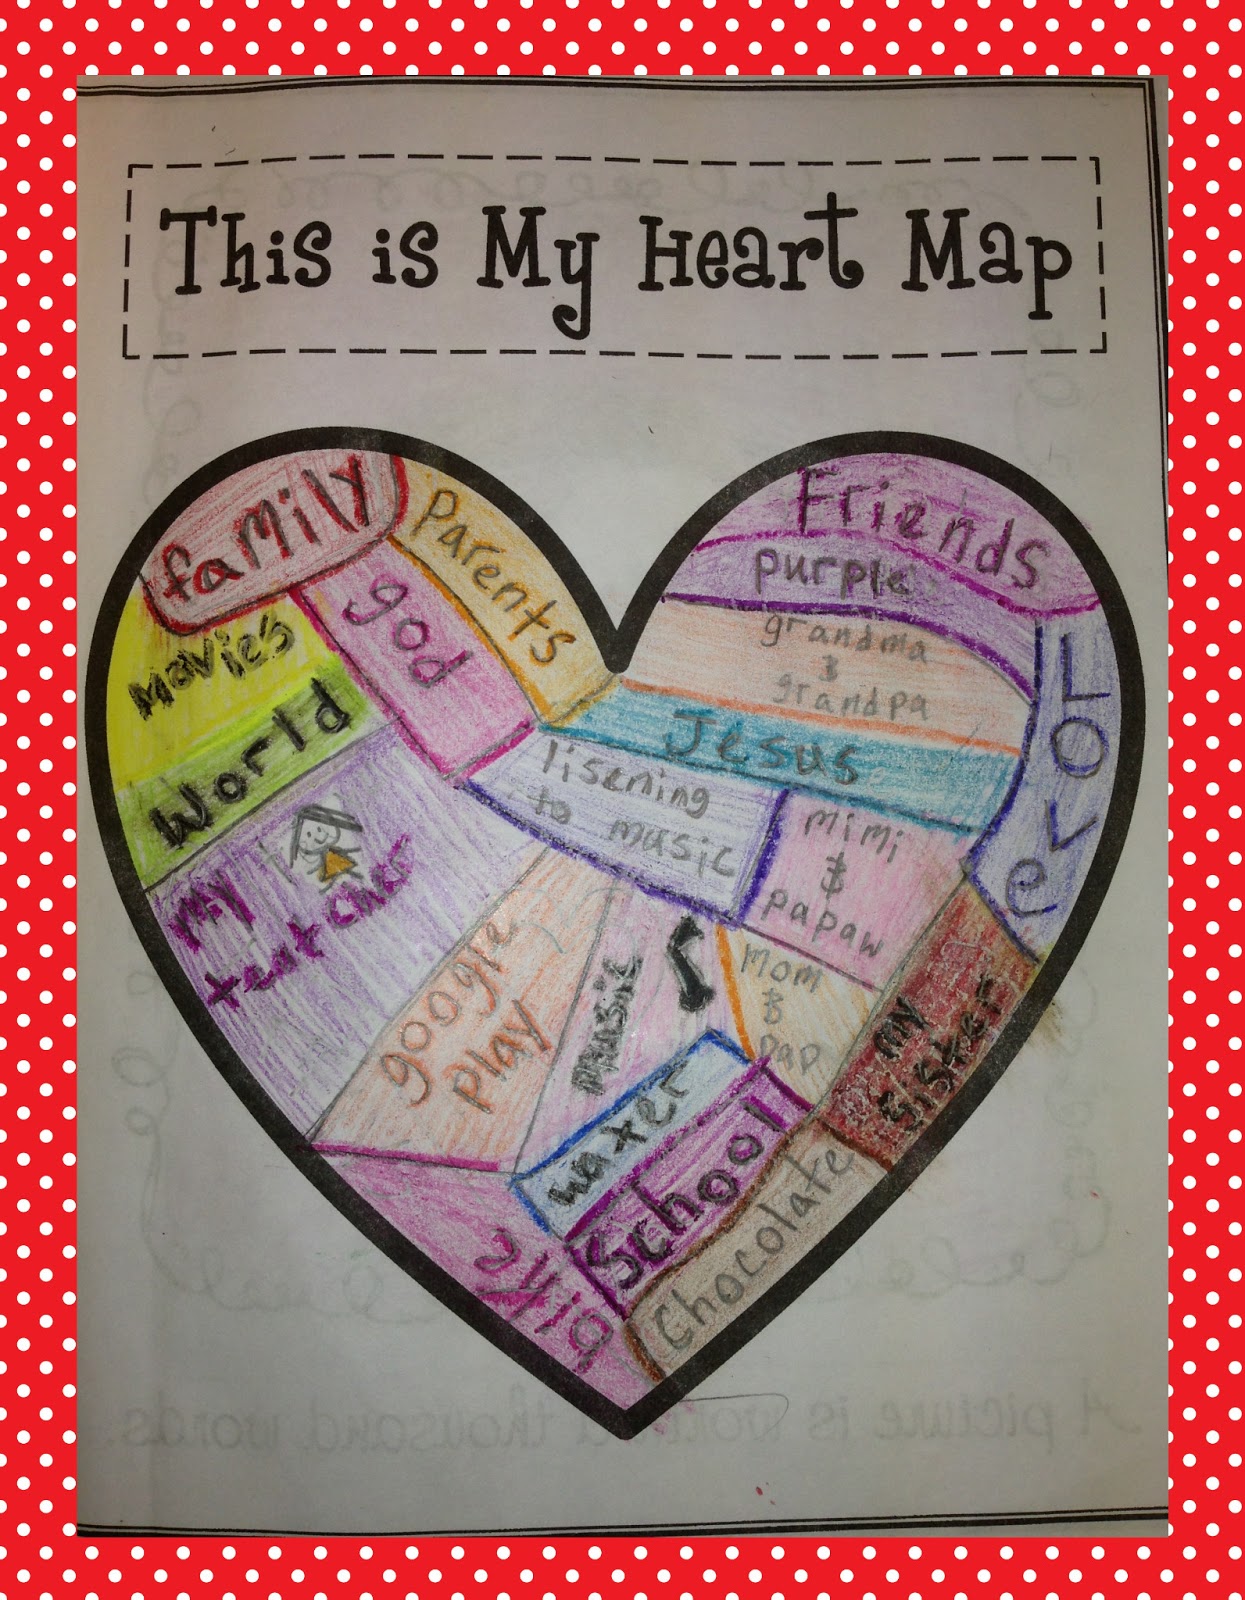 This is My Heart Map
family
Parents
god
Movies
World
My
teatcher
google
play
music
Friends
purple
grandma
&
grandpa
LOVE
Jesus
lisening
to music
mimi
&
papaw
mom
&
pap
my
sister
waxer
School
Chocolate
A picture is worth a thousand words.